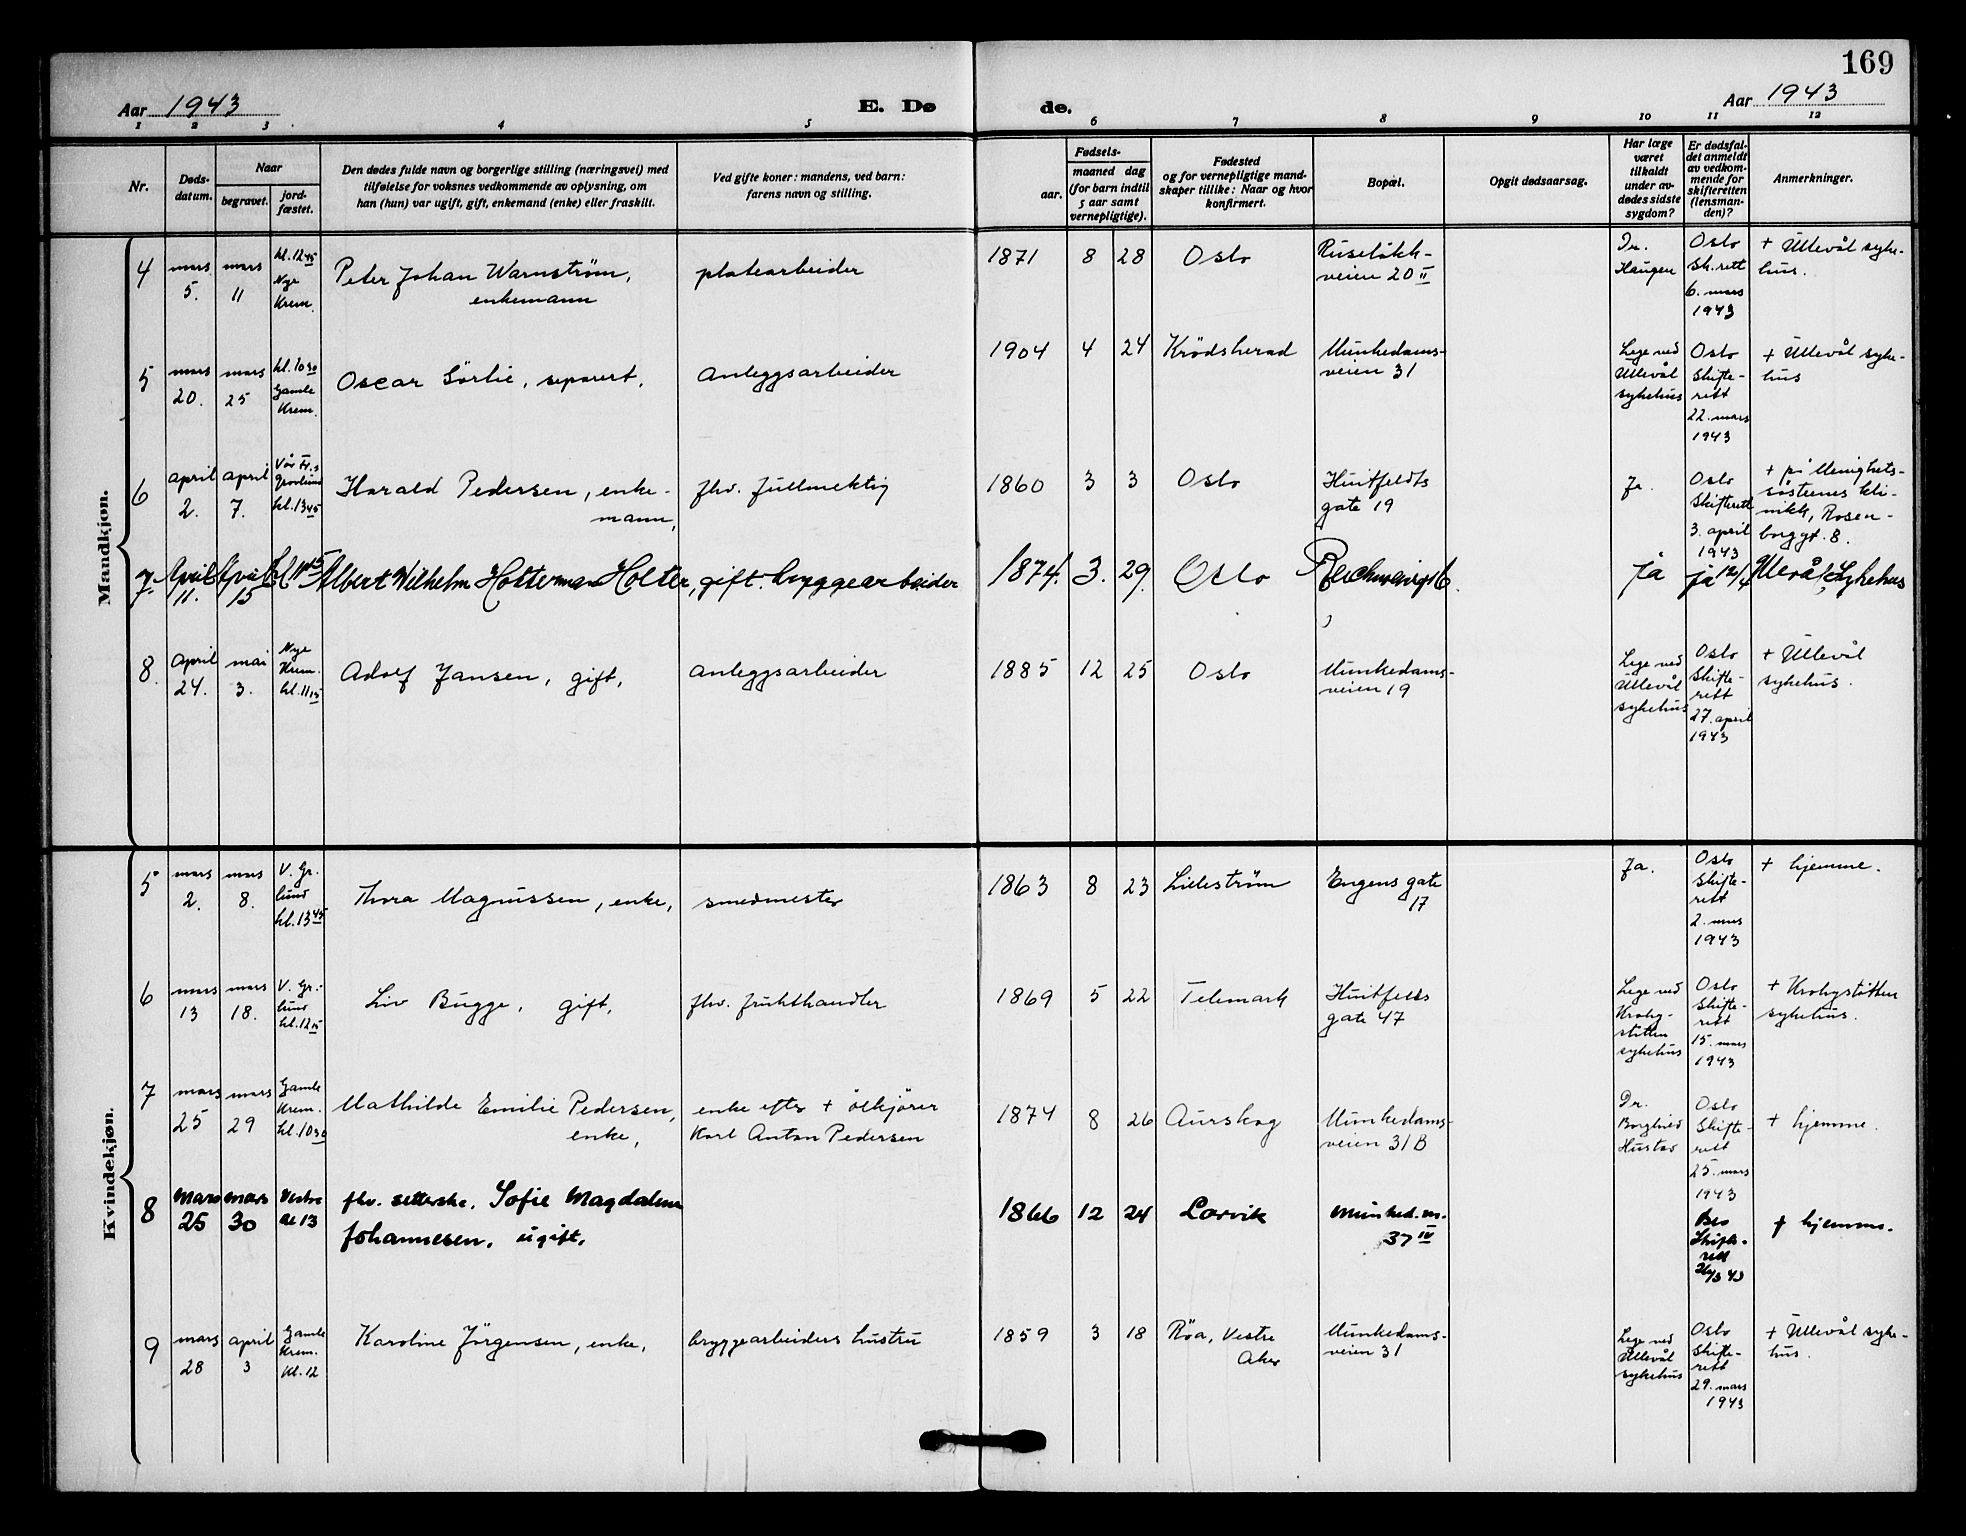 169
Aar 1943
E. Dø
de.
Aar 1943
1 2 3 4 5 6 7 8 9 10 11 12
Nr.
Døds-
datum.
Naar
begravet.
jord-
fæstet.
Den dødes fulde navn og borgerlige stilling (næringsvei) med
tilføielse for voksnes vedkommende av oplysning, om
han (hun) var ugift, gift, enkemand (enke) eller fraskilt.
Ved gifte koner: mandens, ved barn:
farens navn og stilling.
Fødsels-
aar.
maaned dag
(for barn indtil
5 aar samt
vernepligtige).
Fødested
og for vernepligtige mand-
skaper tillike: Naar og hvor
konfirmert.
Bopæl.
Opgit dødsaarsag.
Har læge
været
tilkaldt
under av-
dødes sidste
sygdom?
Er dødsfal-
det anmeldt
av vedkom-
mende for
skifteretten
(lensman-
den)?
Anmerkninger.
Mandkjøn.
4
mars
5.
mars
11
kl. 12 45
Nye
Krem.
Peter Johan Warnstrøm,
enkemann
platearbeider
1871
8
28
Oslo
Ruseløkk-
veien 20 II
Dr.
Haugen
Oslo
sk.rett
6. mars
1943
+ Ullevål syke-
hus.
5
mars
20.
mars
25
kl. 10 30
Gamle
Krem.
Oscar Sörlie, separert,
anleggsarbeider
1904
4
24
Krödsherad
Munkedams-
veien 31
Lege ved
Ullevål
sykehus
Oslo
Skifte-
rett
22. mars
1943
+ Ullevål syke-
hus
6
april
2.
april
7.
Vår Fr.s
Gravlund
kl. 13 45
Harald Pedersen, enke-
mann,
fhv. fullmektig
1860
3
3
Oslo
Huitfeldts
gate 19
Ja.
Oslo
Skifterett
3. april
1943
+ på Menighets-
søstrenes kli-
nikk, Rosen-
borggt. 8.
7.
April
11.
April
15
Albert Wilhelm Holterman Holter, gift. bryggearbeider
1874.
3.
29.
Oslo
Ja
ja 12/4
Ullevål Sykehus
8.
april
24.
mai
3.
Nye
Krem.
kl. 11 15
Adolf Jansen, gift,
anleggsarbeider
1885
12
25
Oslo
Munkedams-
veien 19
Lege ved
Ullevål
sykehus
Oslo
Skifte-
rett
27. april
1943
+ Ullevål
sykehus.
Kvindekjøn.
5
mars
2.
mars
8.
V. Gr.
lund
kl. 13 45
Thora Magnussen, enke,
smedmester
1863
8
23
Lilleström
Engens gate
17
Ja.
Oslo
Skifte-
rett
2. mars
1943
+ hjemme.
6
mars
13
mars
18.
V. Gr.-
lund
kl. 12 15
Liv Bugge, gift,
fhv. frukthandler
1869
5
22
Telemark
Huitfelds
gate 47
Lege ved
Krohg-
støtten
sykehus
Oslo
Skifte-
rett
15. mars
1943
+ Krohgstötten
sykehus.
7
mars
25
mars
29
Gamle
Krem.
kl. 10 30
Mathilde Emilie Pedersen,
enke,
enke efter + ölkjörer
Karl Anton Pedersen
1874
8
26
Aurskog
Munkedams-
veien 31 B
Dr.
Borghild
Hustad
Oslo
Skifte-
rett
25. mars
1943
+ hjemme.
8
mars
25
mars
30
Vestre
kl 13
fhv. setterske, Sofie Magdalene
Johannesen, ugift,
1866
12
24
Larvik
Munked.m.
37 IV
Oslo
Skifte-
rett
+ hjemme.
9
mars
28
april
3
Gamle
Krem.
kl. 12
Karoline Jörgensen, enke,
bryggearbeiders hustru
1859
3
18
Röa, Vestre
Aker
Munkedams-
veien 31
Lege ved
Ullevål
sykehus
Oslo
Skifte-
rett
29. mars
1943
+ Ullevål syke-
hus.